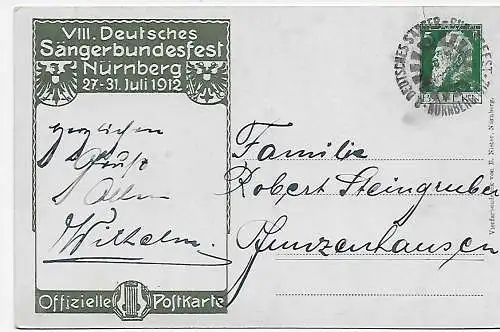 VIII. Deutsches
Sängerbundesfest
Nürnberg
27-31. Juli 1912
herzlichen
Gruß
Allen
Wilhelm.
Offizielle Postkarte
5 5
Familie
Robert Steingruber
Gunzenhausen
8. DEUTSCHES SÄNGER-BUNDESFEST
NÜRNBERG
Vierfarbendruck von E. Nister, Nürnberg.